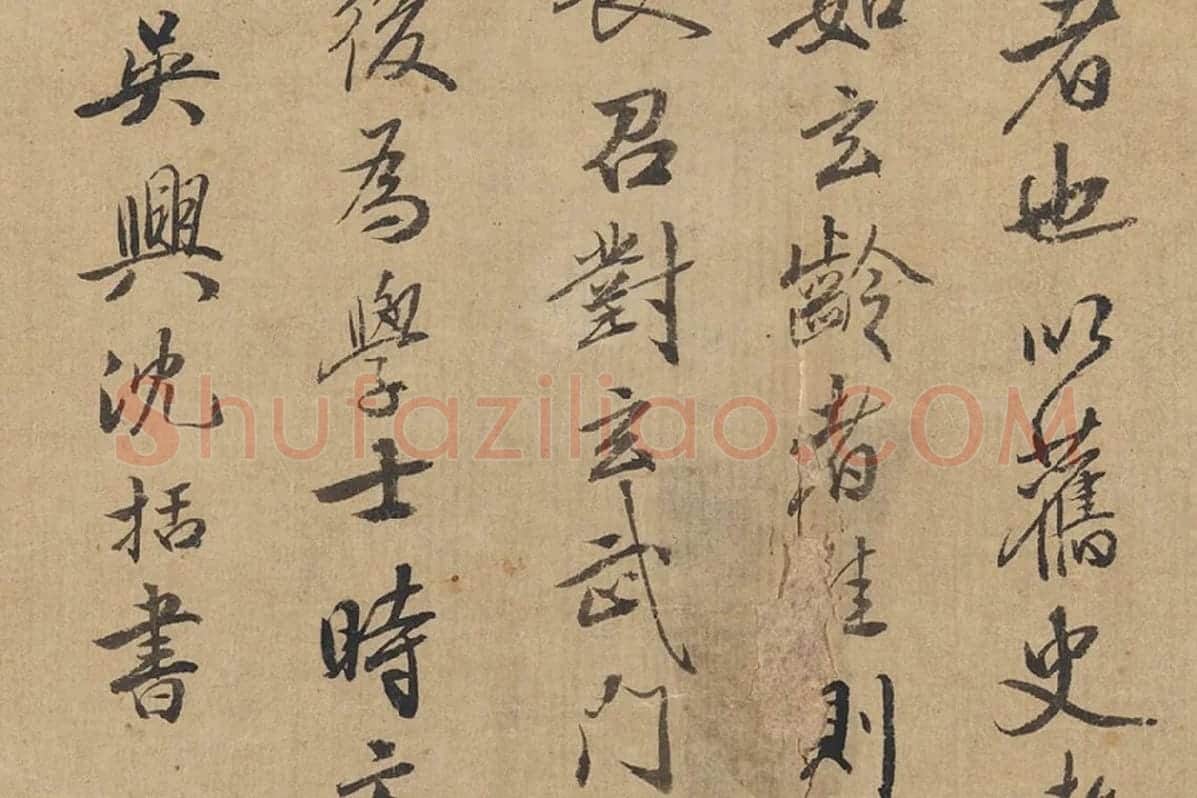 者也以舊史
如玄齡者唯則
召對玄武門
後為學士時
吳興沈括書
Shufaziliao.COM